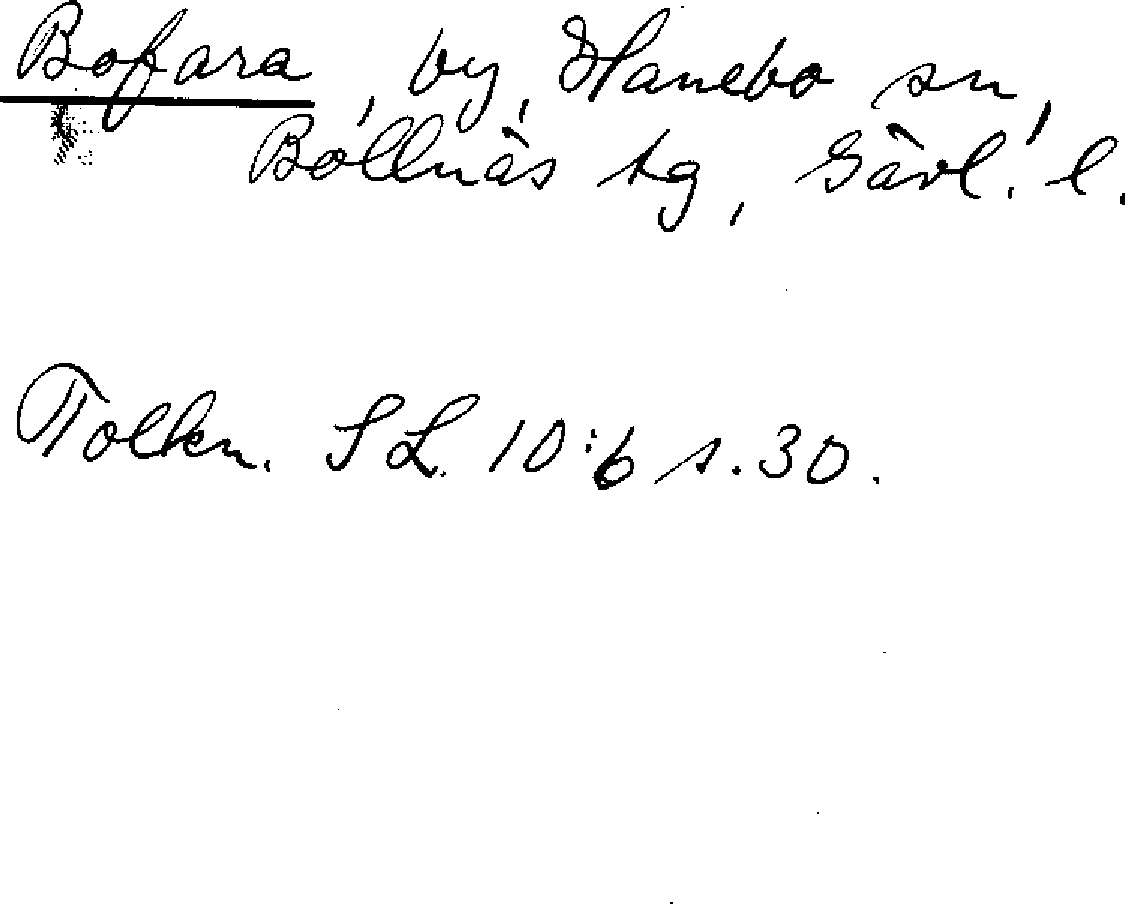 Bofara, by, Hanebo sn,
Bollnäs tg, Gävl. l.
Tolkn. SL 10:6 s. 30.